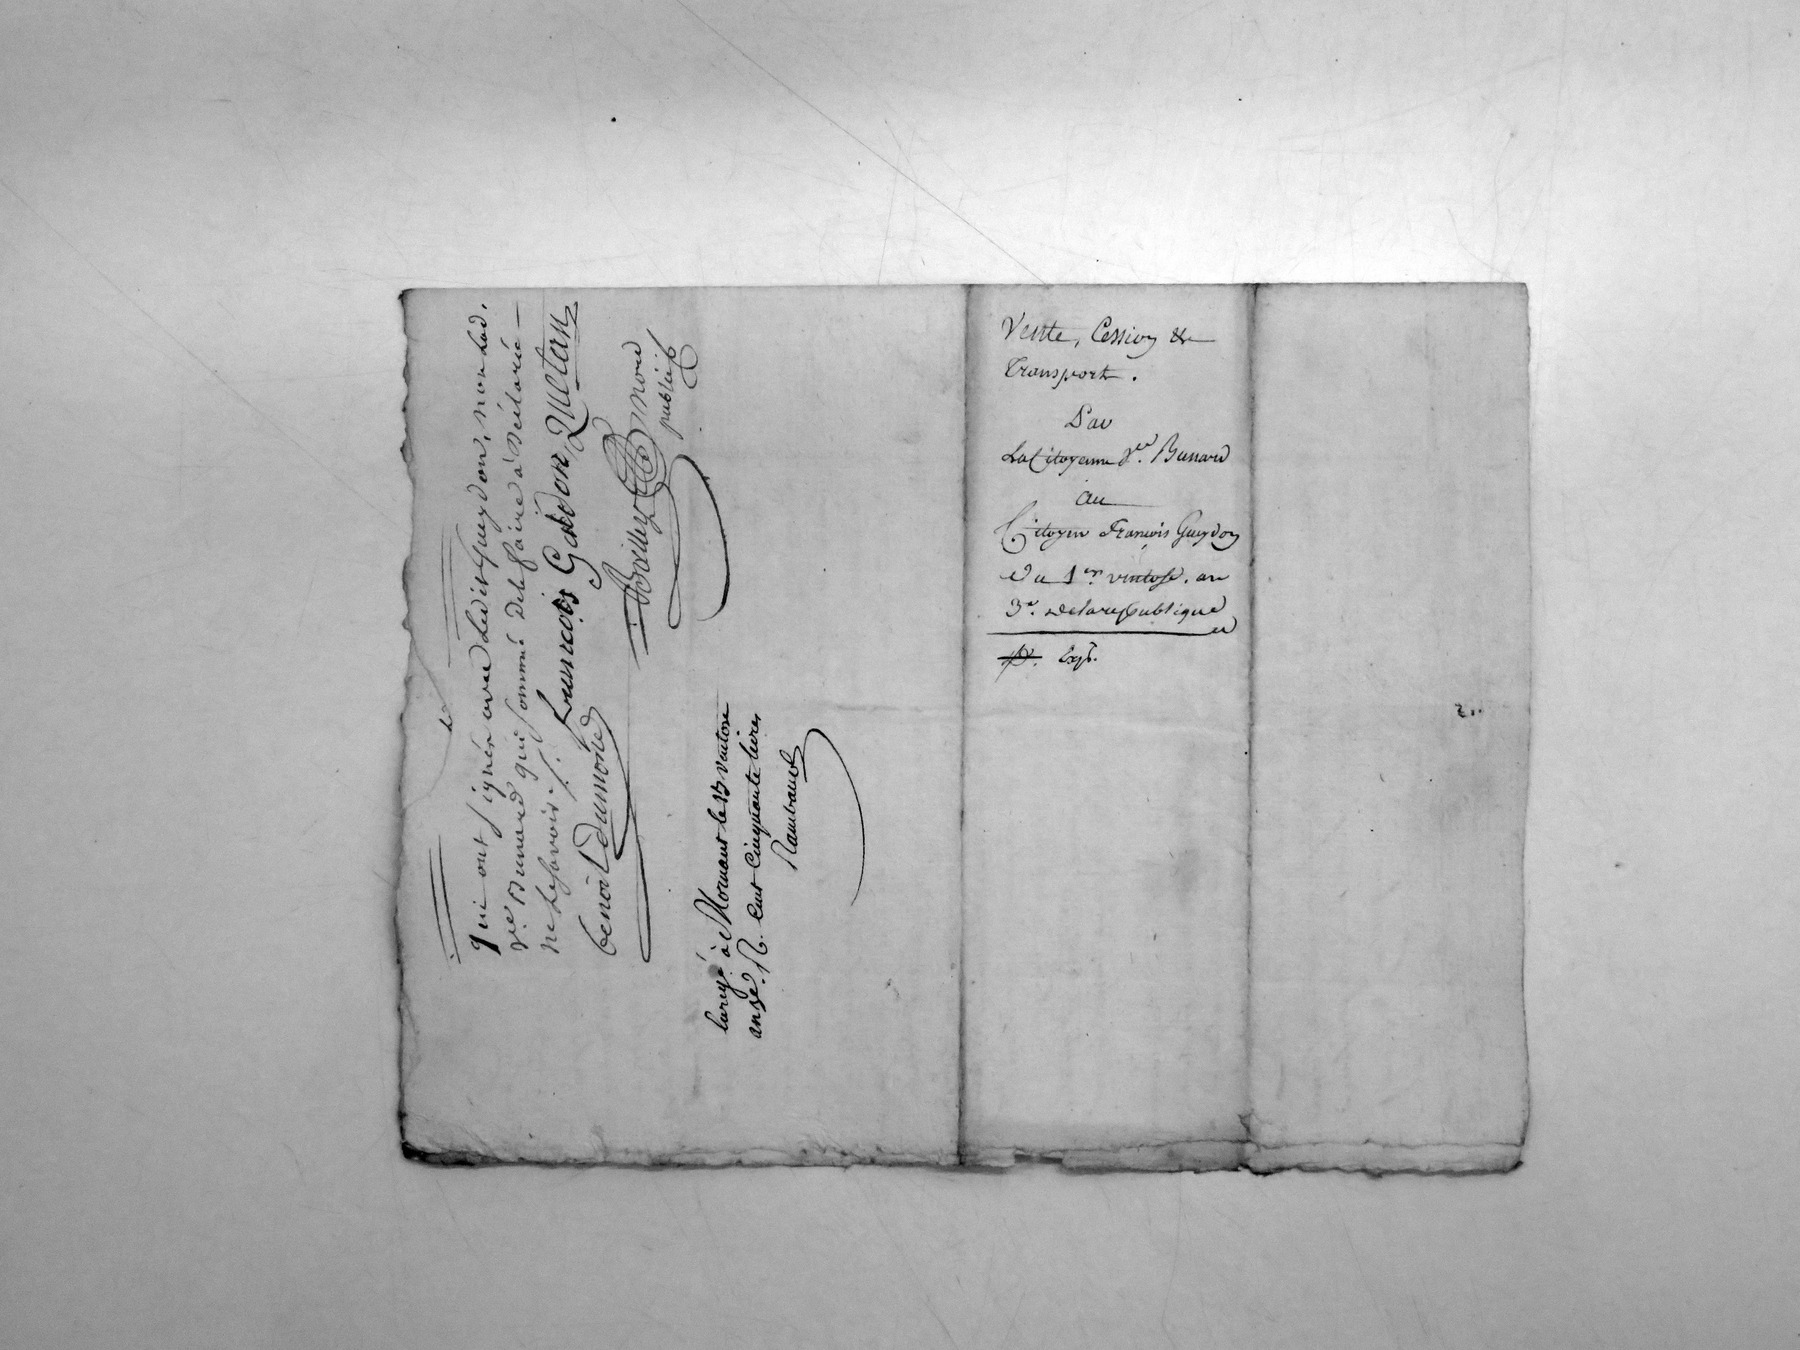 qui ont signés avec Ledit Gueydon, non Lad.
ve. Bunard qui sommé de le faire a déclaré
ne le savoir ./.
françois Gedon Quetan
benoit Dumonté
Baillez nore
public
Enregé. à Mornant le 13 ventose
an 3e. R. Cent Cinquante livres
Rambaud
Vente, Cession &
Transport.
Par
La Citoyenne Ve. Bunard
au
Citoyen François Gueydon
du 1er ventose. an
3e. de la republique
Exp.